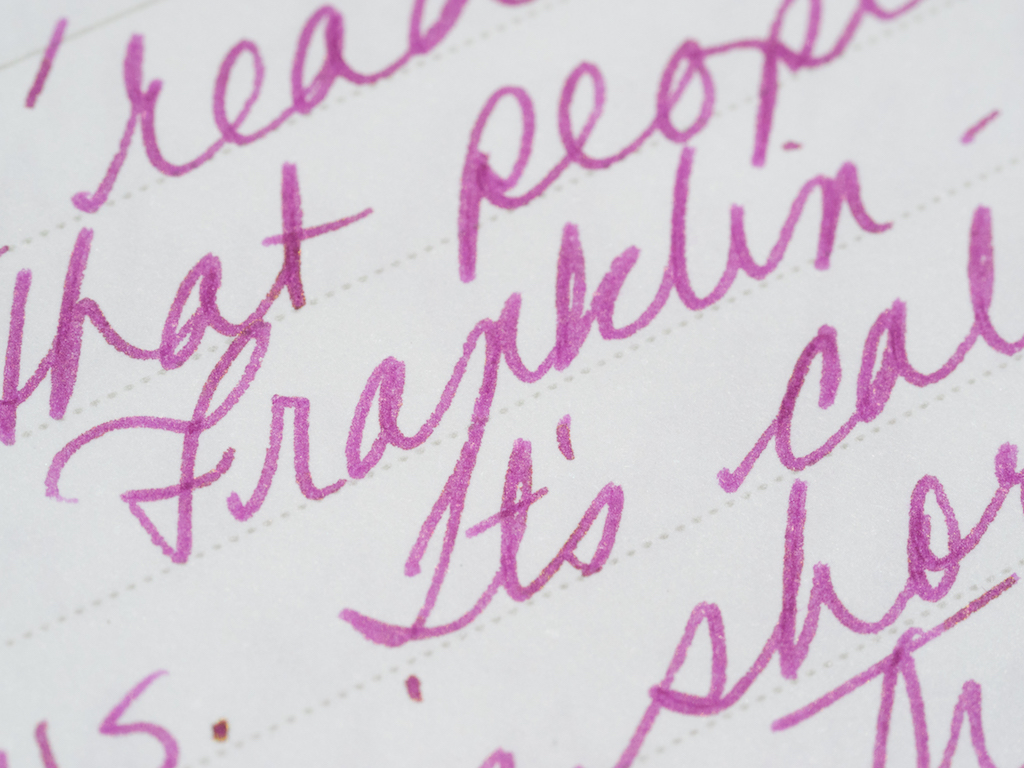 'read
that peop
Franklin
It's cal
us. shor